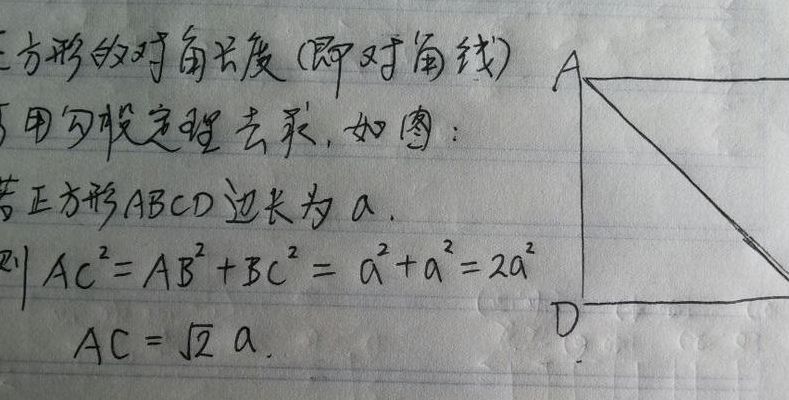 正方形的对角长度(即对角线)
可用勾股定理去求,如图:
若正方形ABCD边长为a.
则AC²=AB²+BC²=a²+a²=2a²
AC=√2 a.
A
D